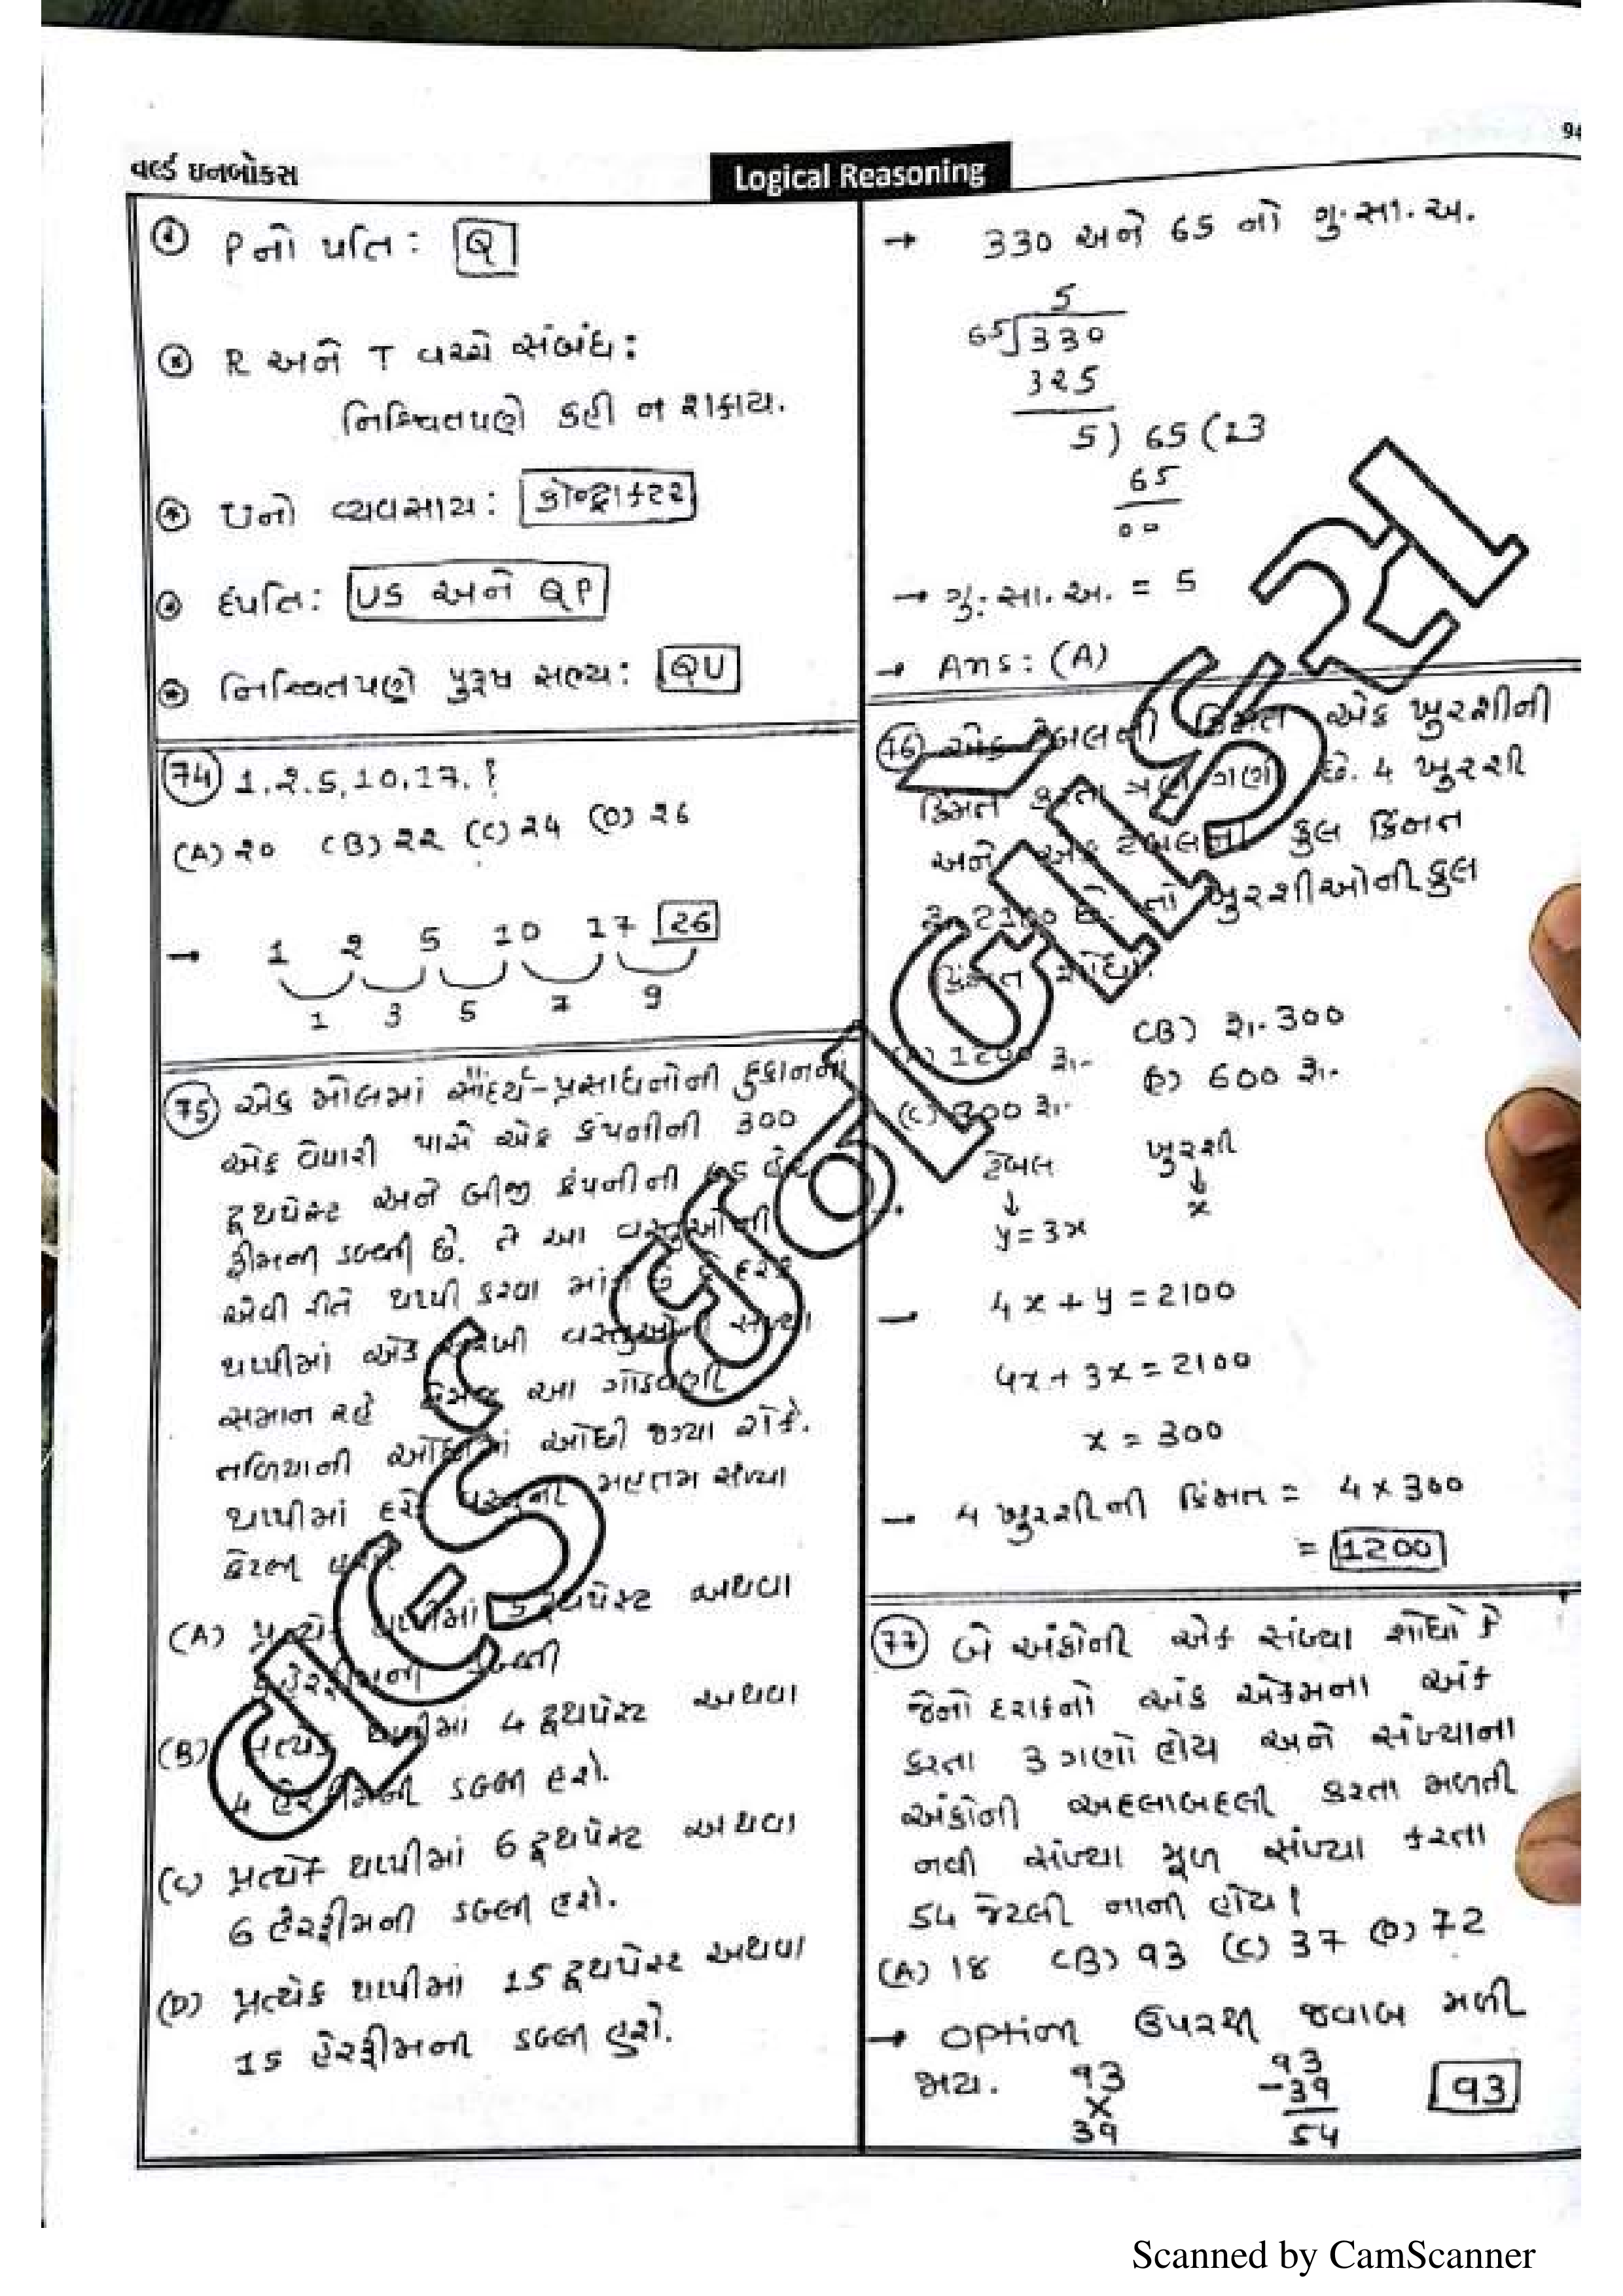 વર્લ્ડ ઇનબોક્સ
Logical Reasoning
94
Pનો પતિ: Q
R અને T વચ્ચે સંબંધ:
નિશ્ચિતપણે કહી ન શકાય.
Uનો વ્યવસાય: કોન્ટ્રાક્ટર
દંપતિ: US અને QP
નિશ્ચિતપણે પુરુષ સભ્ય: QU
74 1,2,5,10,17,?
(A) 20 (B) 22 (C) 24 (D) 26
→ 1 2 5 10 17 26
1 3 5 7 9
75 એક મોલમાં સૌંદર્ય-પ્રસાધનોની દુકાનમાં
એક વેપારી પાસે એક કંપનીની 300
ટૂથપેસ્ટ અને બીજી કંપનીની
ક્રીમની ડબ્બી છે. તે આ વસ્તુઓની
એવી રીતે થપ્પી કરવા
થપ્પીમાં એક સરખી વસ્તુઓની સંખ્યા
સમાન રહે તેમજ આ ગોઠવણી
તળિયાની ઓછામાં ઓછી જગ્યા રોકે.
થપ્પીમાં મહત્તમ સંખ્યા
કેટલી
(A) પ્રત્યેક થપ્પીમાં 5 ટૂથપેસ્ટ અથવા
5 હેરક્રીમની ડબ્બી
(B) પ્રત્યેક થપ્પીમાં 4 ટૂથપેસ્ટ અથવા
4 હેરક્રીમની ડબ્બી હશે.
(C) પ્રત્યેક થપ્પીમાં 6 ટૂથપેસ્ટ અથવા
6 હેરક્રીમની ડબ્બી હશે.
(D) પ્રત્યેક થપ્પીમાં 15 ટૂથપેસ્ટ અથવા
15 હેરક્રીમની ડબ્બી હશે.
→ 330 અને 65 નો ગુ.સા.અ.
5
65) 330
325
5) 65 (13
65
00
→ ગુ.સા.અ. = 5
→ Ans: (A)
76 એક ટેબલની કિંમત એક ખુરશીની
કિંમત કરતા ત્રણ ગણી છે. 4 ખુરશી
અને એક ટેબલની કુલ કિંમત
રૂ. 2100 છે. તો ખુરશીઓની કુલ
કિંમત શોધો.
(A) 1200 રૂ. (B) રૂ. 300
(C) રૂ. (D) 600 રૂ.
ટેબલ ખુરશી
↓ ↓
y = 3x x
→ 4x + y = 2100
4x + 3x = 2100
x = 300
→ 4 ખુરશીની કિંમત = 4 x 300
= 1200
77 બે અંકોની એક સંખ્યા શોધો કે
જેનો દશકનો અંક એકમના અંક
કરતા 3 ગણો હોય અને સંખ્યાના
અંકોની અદલાબદલી કરતા મળતી
નવી સંખ્યા મૂળ સંખ્યા કરતા
54 જેટલી નાની હોય!
(A) 18 (B) 93 (C) 37 (D) 72
→ option ઉપરથી જવાબ મળી
જાય. 93 93 93
X -39
39 54
Scanned by CamScanner